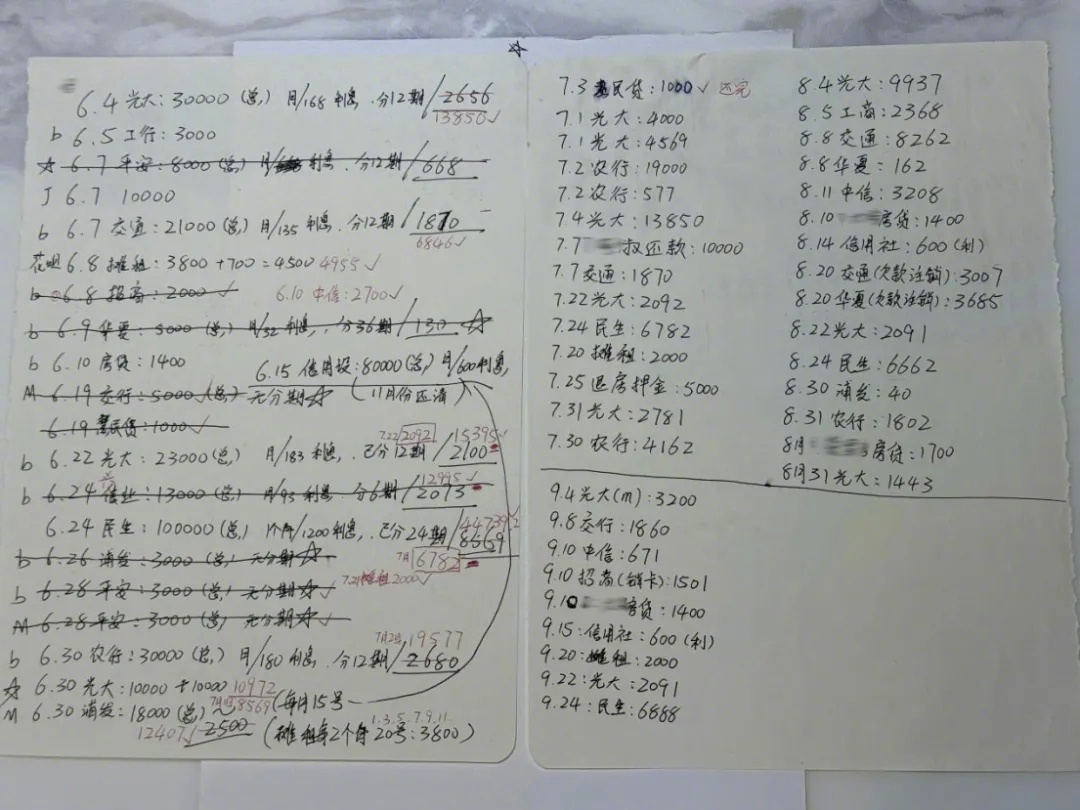 6.4 光大:30000(总) 月/168利息.分12期/2656
13850✓
b 6.5 工行:3000
☆ 6.7 平安:8000(总) 月/利息.分12期/668
J 6.7 10000
b 6.7 交通:21000(总) 月/135利息.分12期/1870
6846✓
花呗 6.8 摊租:3800+700=4500 4955✓
b 6.8 招商:2000✓ 6.10 中信:2700✓
b 6.9 华夏:5000(总) 月/32利息,分36期/130 ☆
b 6.10 房贷:1400
6.15 信用设:80000(总) 月/600利息,
(11月份还清)
M 6.19 交行:5000(总) 无分期☆
6.19 惠民贷:1000✓
7.22 2092 15395✓
b 6.22 光大:23000(总) 月/183利息.已分12期/2100
12995✓
b 6.24 信业:13000(总) 月/93利息 分6期/2073
44739
6.24 民生:100000(总) 1个月/1200利息.已分24期/8669
7月 6782
b 6.26 浦发:3000(总) 无分期☆
7.21摊租2000✓
b 6.28 平安:3000(总) 无分期☆✓
M 6.28 平安:3000(总) 无分期☆✓
7月2日 19577
b 6.30 农行:30000(总) 月/180利息.分12期/2680
☆ 6.30 光大:10000+10000 10972
8569 (每月15号
M 6.30 浦发:18000(总)
12407✓ 2500 (摊租每2个月20号:3800)
1.3.5.7.9.11.
☆
7.3 惠民贷:1000✓ 还完
7.1 光大:4000
7.1 光大:4569
7.2 农行:19000
7.2 农行:577
7.4 光大:13850
7.7 叔还款:10000
7.7 交通:1870
7.22 光大:2092
7.24 民生:6782
7.20 摊租:2000
7.25 退房押金:5000
7.31 光大:2781
7.30 农行:4162
8.4 光大:9937
8.5 工商:2368
8.8 交通:8262
8.8 华夏:162
8.11 中信:3208
8.10 房贷:1400
8.14 信用社:600(利)
8.20 交通(欠款注销):3007
8.20 华夏(欠款注销):3685
8.22 光大:2091
8.24 民生:6662
8.30 浦发:40
8.31 农行:1802
8月 房贷:1700
8月31 光大:1443
9.4 光大(m):3200
9.8 交行:1860
9.10 中信:671
9.10 招商(销卡):1501
9.10 房贷:1400
9.15:信用社:600(利)
9.20:摊租:2000
9.22:光大:2091
9.24:民生:6888